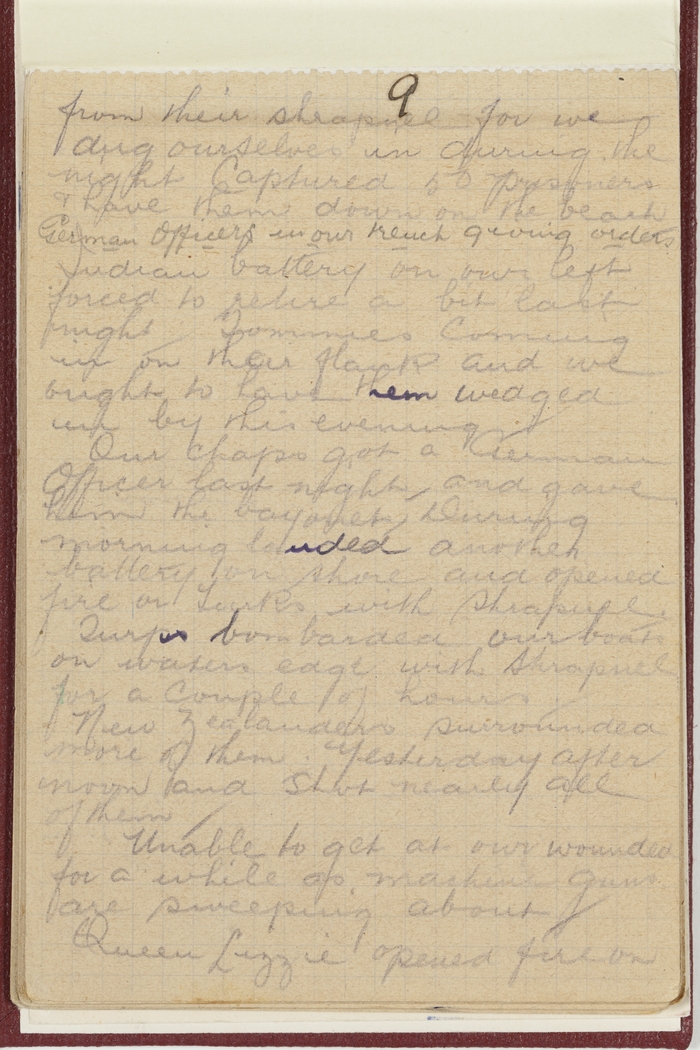 9
from their shrapnel for we
dug ourselves in during the
night Captured 50 prisoners
& have them down on the beach
German Officers in our trench giving orders
Indian battery on our left
forced to retire a bit last
night Tommies Coming
in on their flank and we
ought to have them wedged
in by this evening
Our chaps got a German
Officer last night, and gave
him the bayonet, During
morning landed another
battery on shore and opened
fire on Turks with shrapnel.
Turps bombarded our boats
on waters edge with shrapnel
for a couple of hours
New Zealanders surrounded
more of them. Yesterday after
noon and shot nearly all
of them
Unable to get at our wounded
for a while as machine guns
are sweeping about
Queen Lizzie opened fire on